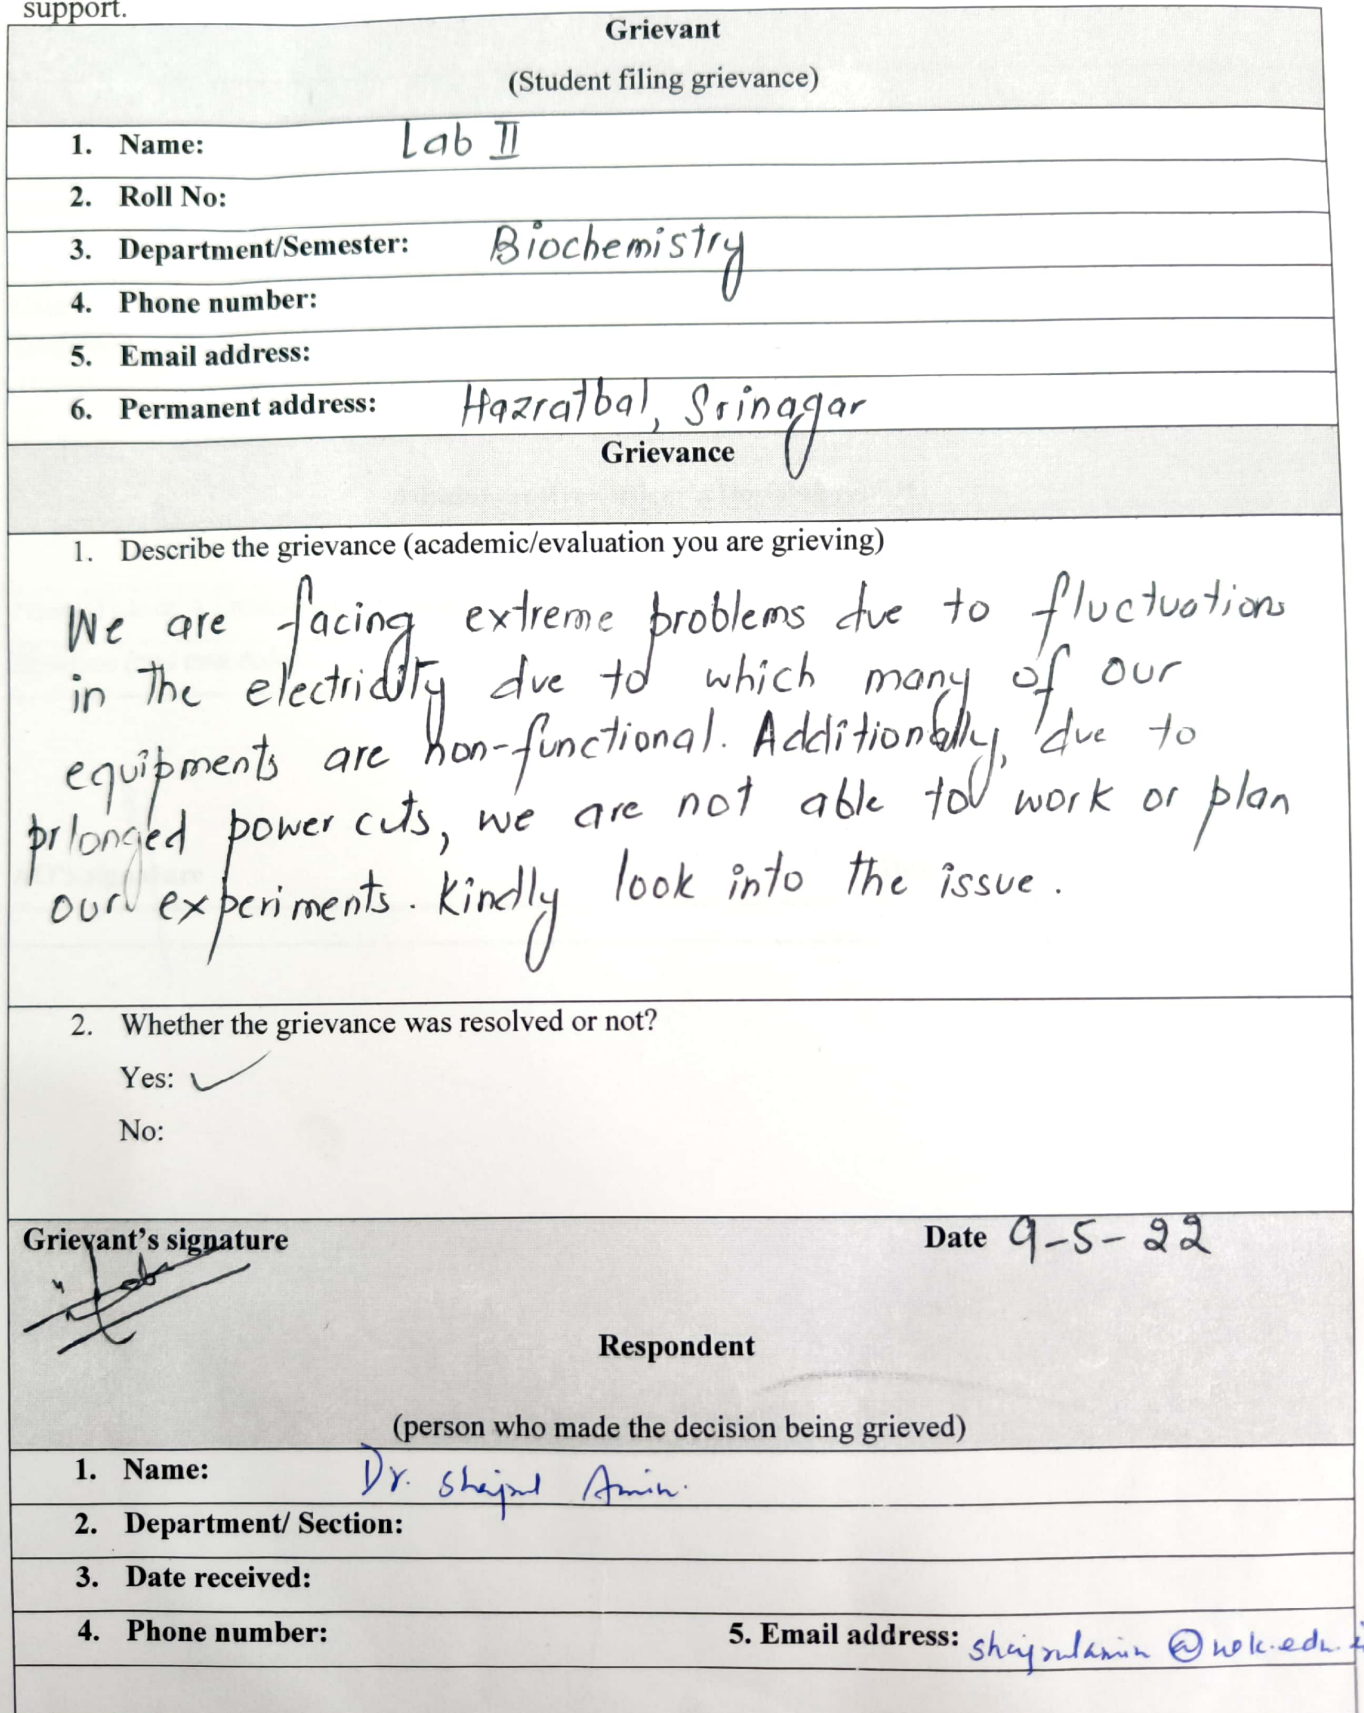 support.
Grievant
(Student filing grievance)
1. Name: Lab II
2. Roll No:
3. Department/Semester: Biochemistry
4. Phone number:
5. Email address:
6. Permanent address: Hazratbal, Srinagar
Grievance
1. Describe the grievance (academic/evaluation you are grieving)
We are facing extreme problems due to fluctuations
in the electricity due to which many of our
equipments are non-functional. Additionally, due to
prlonged power cuts, we are not able to work or plan
our experiments. Kindly look into the issue.
2. Whether the grievance was resolved or not?
Yes: ✓
No:
Grievant's signature Date 9-5-22
Respondent
(person who made the decision being grieved)
1. Name: Dr. Shajrul Amin.
2. Department/ Section:
3. Date received:
4. Phone number: 5. Email address: shajrulamin@uok.edu.i